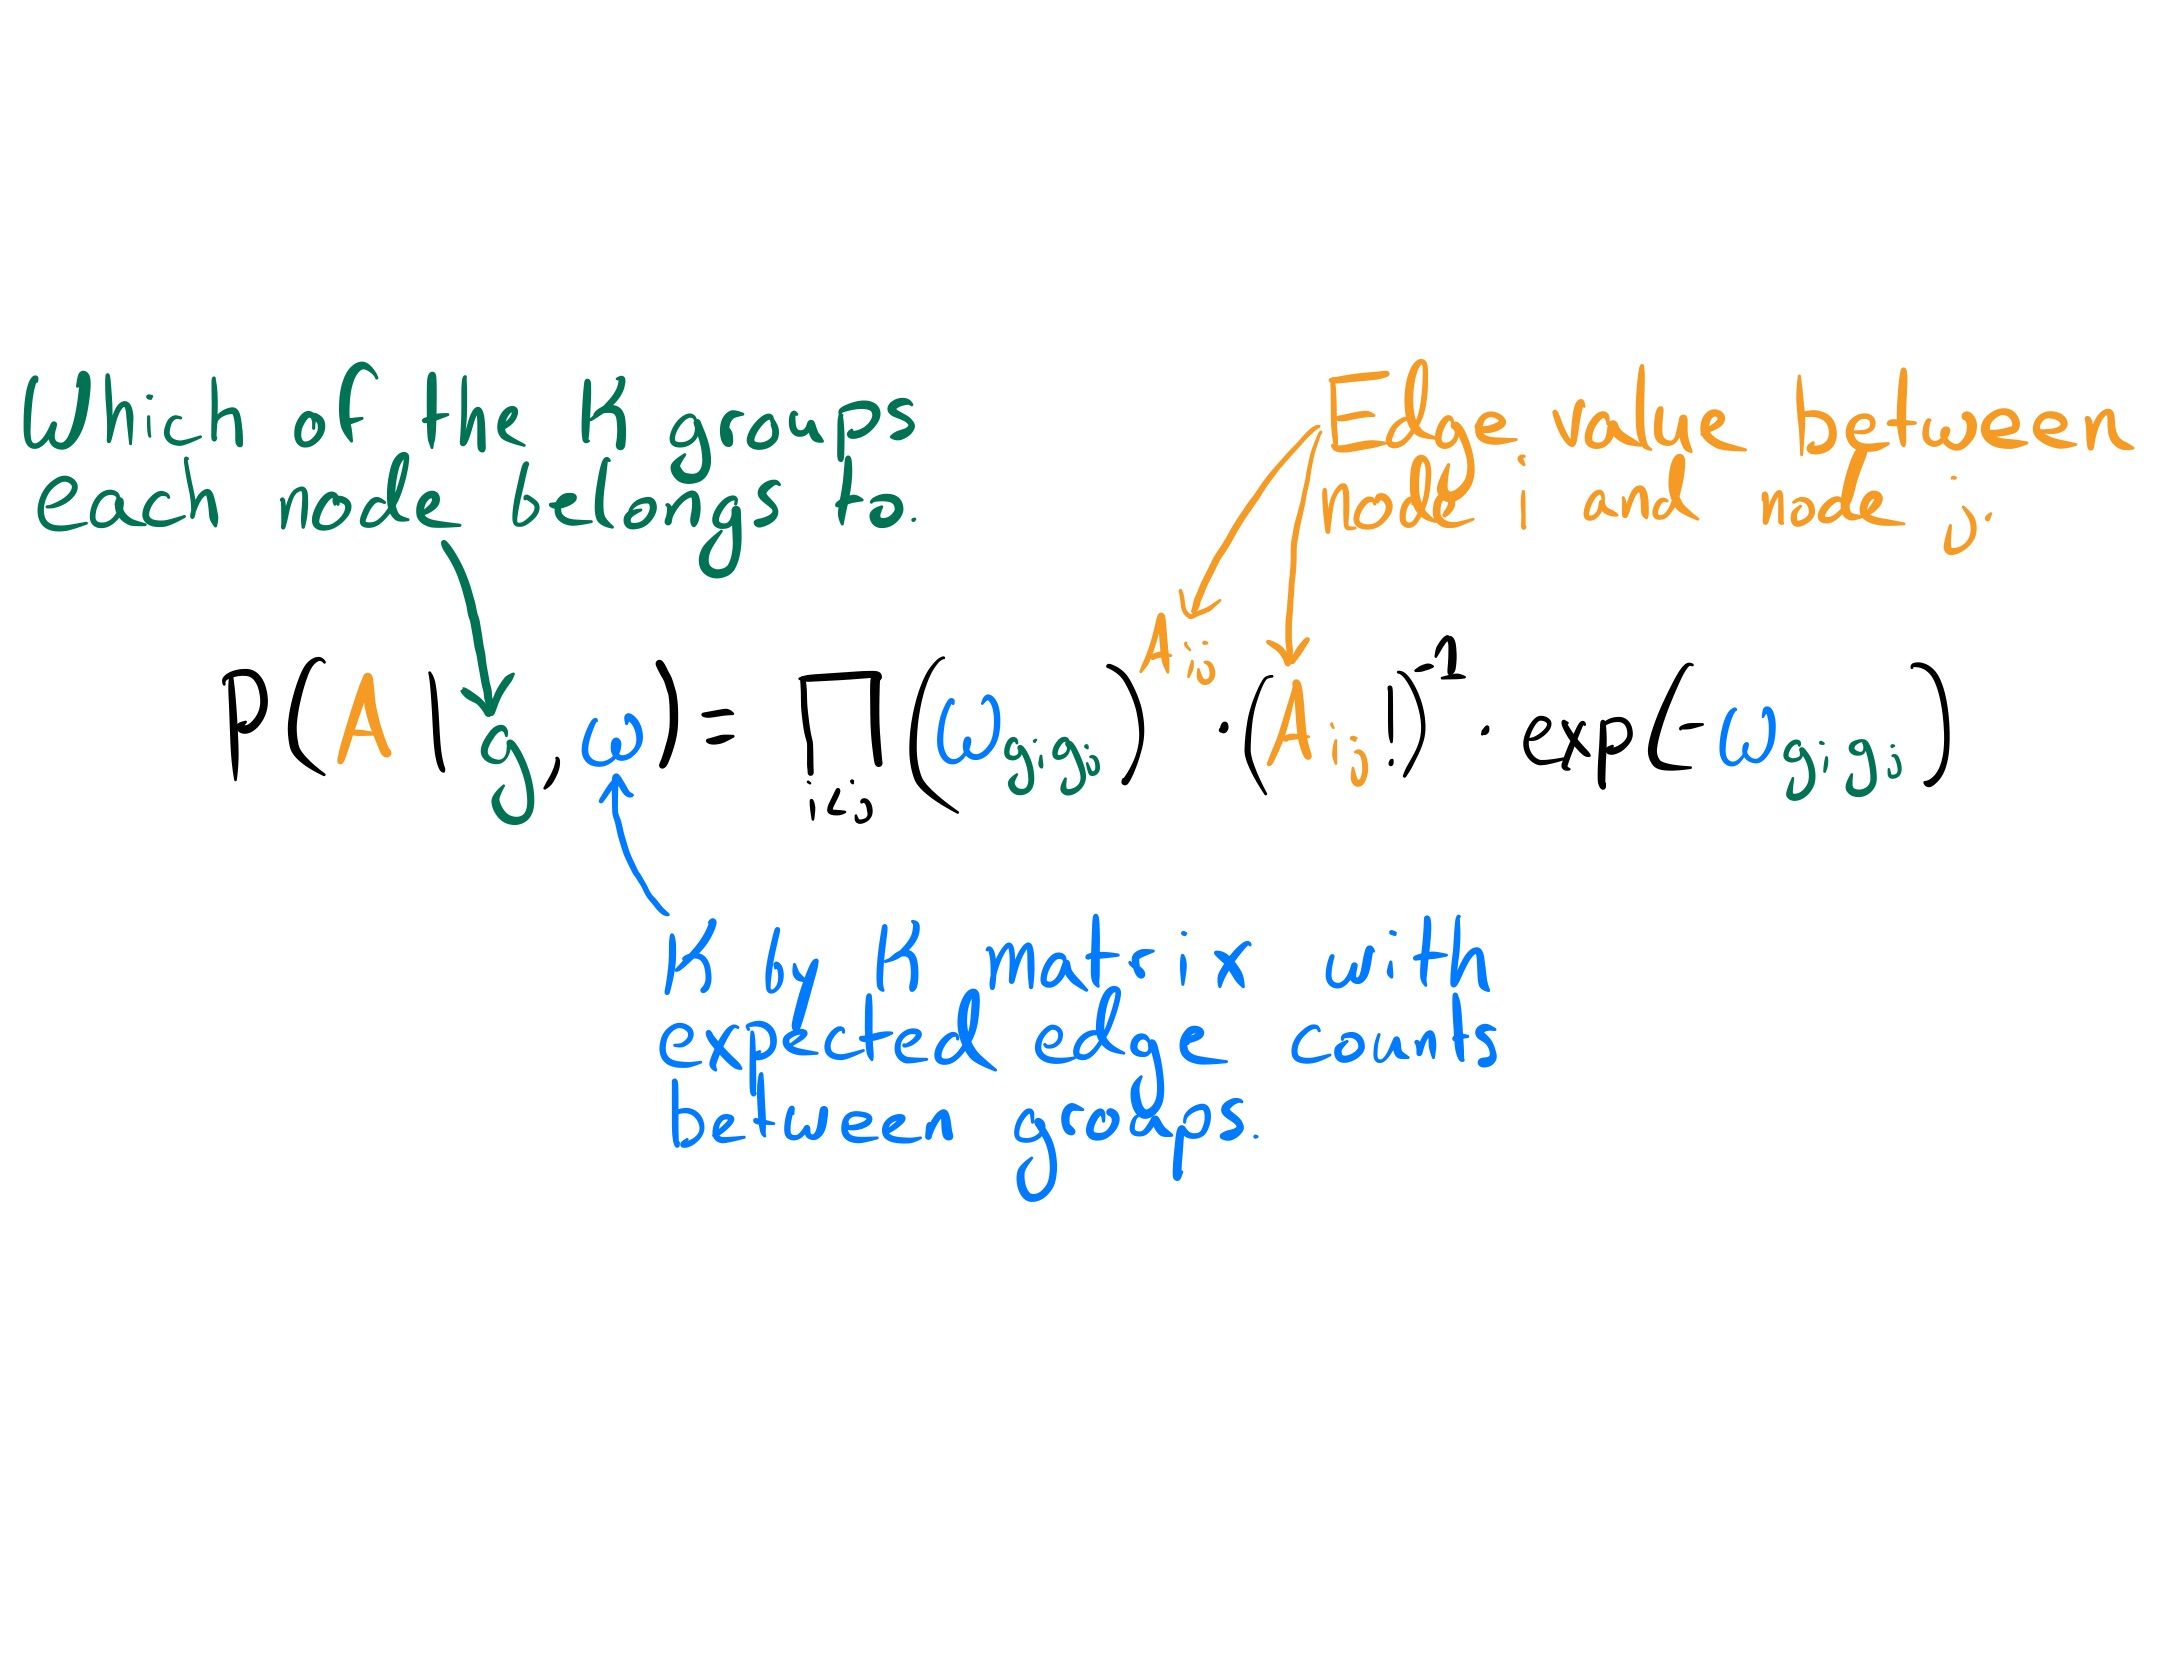 Which of the K groups
each node belongs to.
Edge value between
node i and node j.
P(A|g,ω)=∏_{i<j}(ω_{g_i,g_j})^{A_{ij}}·(A_{ij}!)^{-1}·exp(-ω_{g_i,g_j})
K by K matrix with
expected edge counts
between groups.